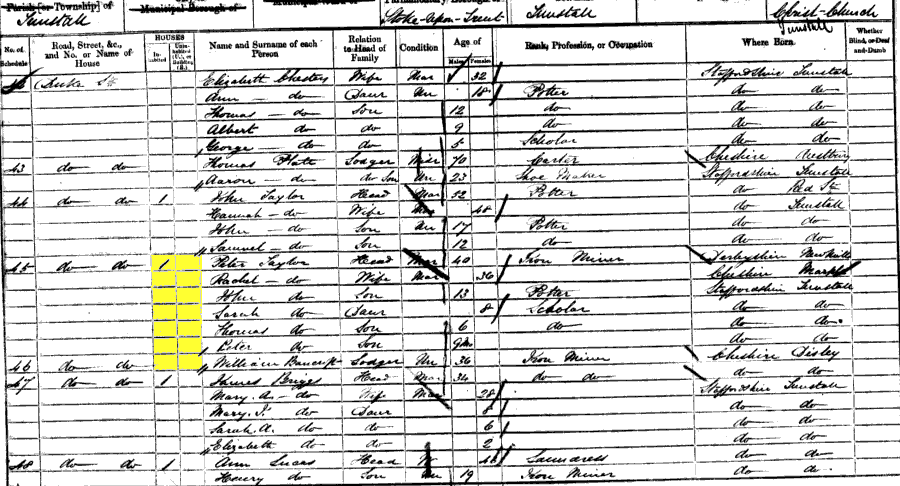 Parish [or Township] of
Tunstall
Municipal Borough of
Stoke-upon-Trent
Tunstall
Christ-Church
Tunstall
No. of Schedule
Road, Street, &c., and No. or Name of House
HOUSES
In-habited
Unin-habited (U.), or Building (B.)
Name and Surname of each Person
Relation to Head of Family
Condition
Age of
Males
Females
Rank, Profession, or Occupation
Where Born
Whether Blind, or Deaf-and-Dumb
Elizabeth Chesters Wife Mar 32 Staffordshire Tunstall
Ann do Daur Un 18 Potter do do
Thomas do Son 12 do do do
Albert do do 9 do do
George do do 5 Scholar do do
43 do do Thomas Plate Lodger 70 Carter Cheshire
Aaron do do Son Un 23 Shoe Maker Staffordshire Tunstall
44 do do 1 John Taylor Head Mar 52 Potter do Red St
Hannah do Wife Mar 48 do Tunstall
John do Son Un 17 Potter do do
Samuel do Son 12 do do do
45 do do 1 Peter Taylor Head Mar 40 Iron Miner Derbyshire
Rachel do Wife Mar 36 Cheshire
John do Son 13 Potter Staffordshire Tunstall
Sarah do Daur 8 Scholar do do
Thomas do Son 6 do do do
Peter do Son 9m do do
46 do do William Lodger Un 36 Iron Miner Cheshire Disley
47 do do 1 James Head Mar 34 do do do do
Mary A. do Wife Mar 28 Staffordshire Tunstall
Mary J. do Daur 8 do do
Sarah A. do do 6 do do
Elizabeth do do 2 do do
48 do do 1 Ann Lucas Head W Laundress do do
Henry do Son Un 19 Iron Miner do do